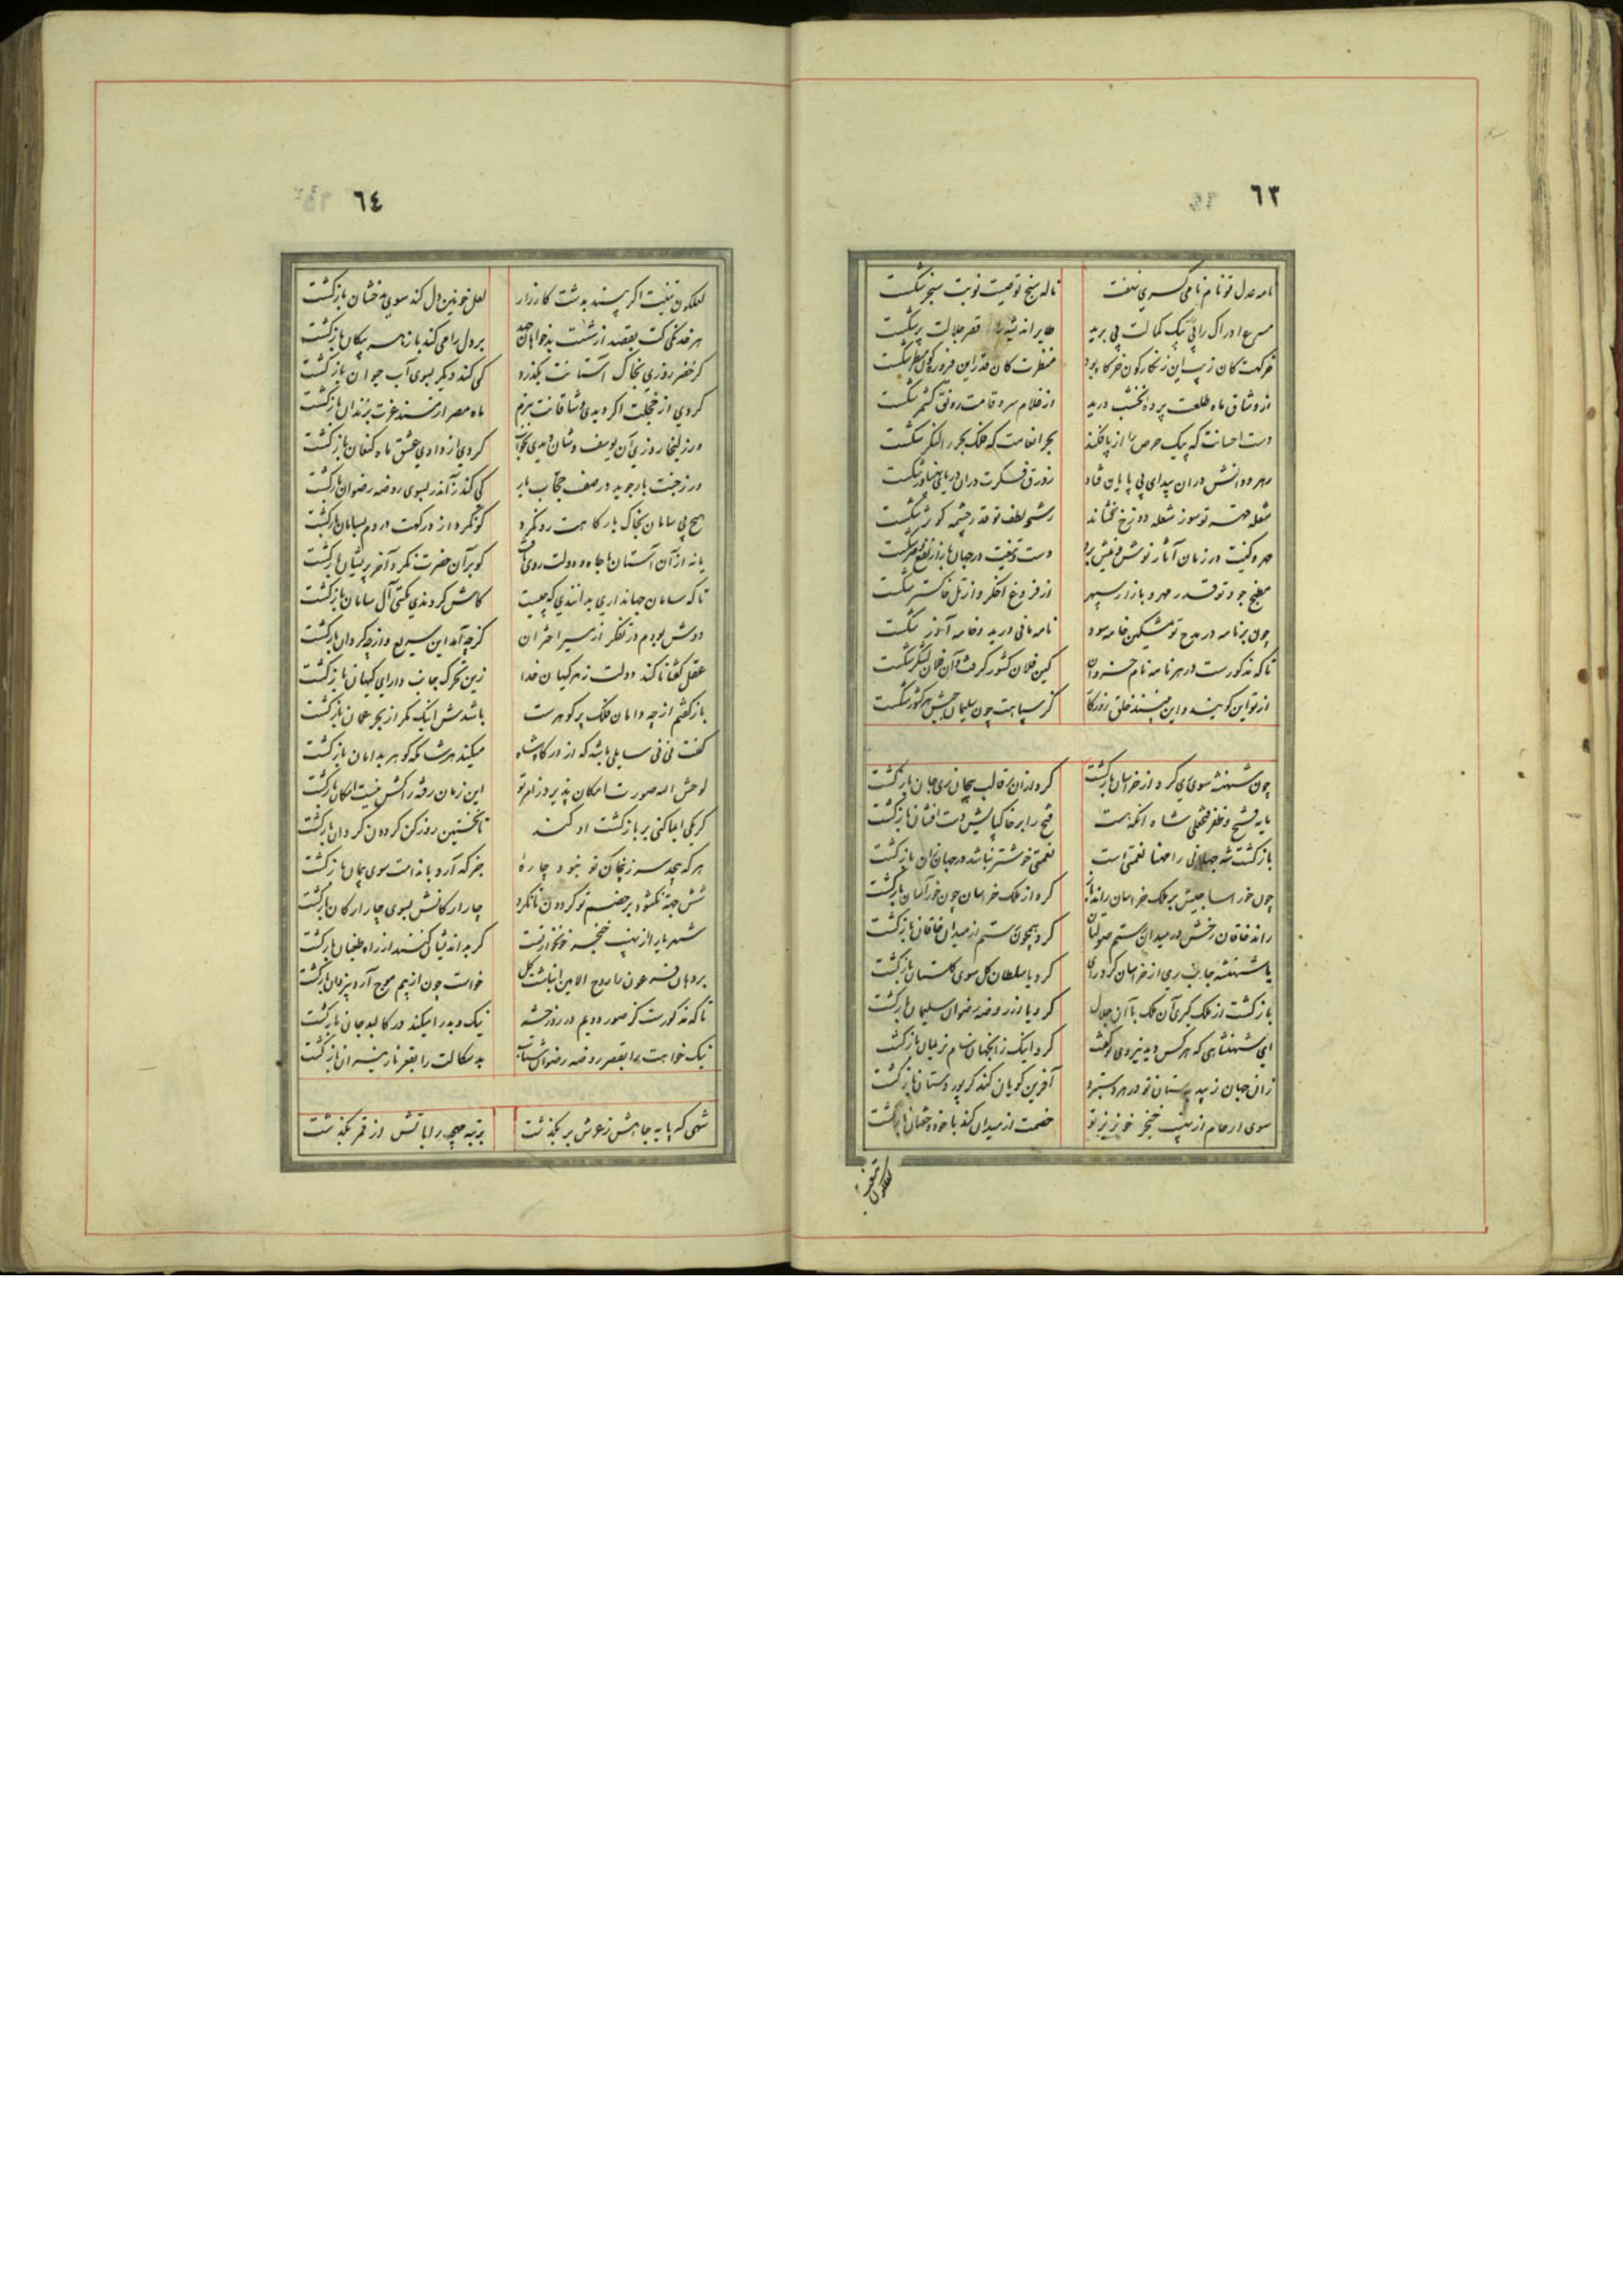 ٦٣
نامه عدل تو نام نامی کسری نهفت ناله سنج نوبت سنجر شکست
مسرع ادراک را پی پیک کمالت پی برید طایر اندیشه را قصر جلالت پر شکست
خرگهت کان زیب این زنگارگون خرگاه بود منظرت کان قدر این منظر شکست
از وشاق ماه طلعت پرده نخشب درید از غلام سرو قامت رونق کشمر شکست
دست احسانت که پیک حرص را از پا فکند بحر انعامت که فلک بحر را لنگر شکست
رهرو دانش در آن بیدای بی پایان فتاد زورق فکرت در آن دریای پهناور شکست
شعله توسوز شعله دوزخ نشاند رشحه لطف تو قدر چشمه کوثر شکست
مهر و کینت در زمان آثار نوش و نیش برد دست و تیغت در جهان بازار نفع و ضر شکست
مطبخ جود تو قدر مهر و بازار سپهر از فروغ اخگر و از تل خاکستر شکست
چون بر نامه در مدح تو مشکین خامه سود نامه مانی درید و خامه آذر شکست
تا که مذکور است در هر نامه نام خسروان کین فلان کشور گرفت و آن فلان لشکر شکست
از تو این گویند و این خلق روزگار کز سپاهت چون سلیمان جیش هر کشور شکست
چون شهنشه سوی ری کرد از خراسان بازگشت کرد از آن بر قالب بیجان ری جان بازگشت
مایه فتح و ظفر فتحعلی شاه آنکه هست فتح را بر خاک پایش دست افشان بازگشت
بازگشت شه جهانی را نعمتی است نعمتی خوشتر نباشد در جهان زان بازگشت
چون خور آسا جیش بر ملک خراسان راند باز کرد از ملک خراسان چون خور آسان بازگشت
راند خاقان رخش در میدان رستم صولتان کرد همچون رستم از میدان خاقان بازگشت
یا شهنشه جانب ری از خراسان کرد رای کرد یا سلطان گل سوی گلستان بازگشت
بازگشت از ملک گیری آن ملک با آن جلال کرد یا از روضه رضوان سلیمان بازگشت
ای شهنشاهی که هر کس دید نیروی تو گفت کرد اینک زانجهان سام نریمان بازگشت
زان جهان زیب دستان تو در هر دستبرد آفرین گویان کند گر پور دستان بازگشت
سوی ارحام از نهیب خنجر خونریز تو خصمت از میدان کند با بازگشت
لعلگون تیغت
٦٤
لعلگون تیغت اگر بیند بدشت کارزار لعل خونین دل کند سوی بدخشان بازگشت
هر خدنگی کت بقصد از شست بدخواهان جهد بر دل رامی کند باز بازگشت
گر خضر روزی بخاک آستانت بگذرد کی کند دیگر بسوی آب حیوان بازگشت
کردی از خجلت اگر دیدی وشاقانت ببزم ماه مصر از مسند عزت بزندان بازگشت
ور زلیخا روزی آن یوسف وشان دیدی بخواب کردی از وادی عشق ماه کنعان بازگشت
ور ز جنت بار جوید در صف حجاب بار کی کند زان در بسوی روضه رضوان بازگشت
هیچ بی سامان بخاک بارگاهت رو نکرد کو نکرد از درگهت در دم بسامان بازگشت
یا نه از آن آستان با جاه و دولت روی تافت کو بر آن حضرت نکرد آخر پریشان بازگشت
تا که سامان جهانداری بدانندی که چیست کاش کردندی بگیتی آل سامان بازگشت
دوش بودم در تفکر از سیر اختران کز چه آمد این سریع و از چه کرد آن بازگشت
عقل گفتا تا کند دولت ز هر کیهان خدا زین تحرک جانب دارای کیهان بازگشت
باز گفتم از چه دامان فلک پر گوهر است باشدش اینک مگر از بحر عمان بازگشت
گفت نی نی سایلی باشد که از درگاه شاه میکند هر شامگه گوهر بدامان بازگشت
لوحش الله صورت امکان پذیرد ز امر تو این زمان رفته را کش نیست امکان بازگشت
گر یکی ایما کنی بر بازگشت او کند تا نخستین روز کن گردون گردان بازگشت
هر که پیچد سر ز پیمان تو نبود چاره جز که آرد با ندامت سوی پیمان بازگشت
شش جهت نگشود بر خصم تو گردون تا نکرد چار ارکانش بسوی چار ارکان بازگشت
شهریارا از نهیب خنجر خونخوار تست گر بداندیشان کنند از راه طغیان بازگشت
بر دهان فرعون را روح الامین انباشت گل خواست چون از بیم موج آرد بیزدان بازگشت
تا که مذکور است کز صور دویم در روز حشر نیک و بد را میکند در کالبد جان بازگشت
نیک خواهت را بقصر روضه رضوان شتاب بدسگالت را بقعر نار نیران بازگشت
شهی که پایه جاهش ز عرش بر بگذشت برتبه رایاتش از قمر بگذشت